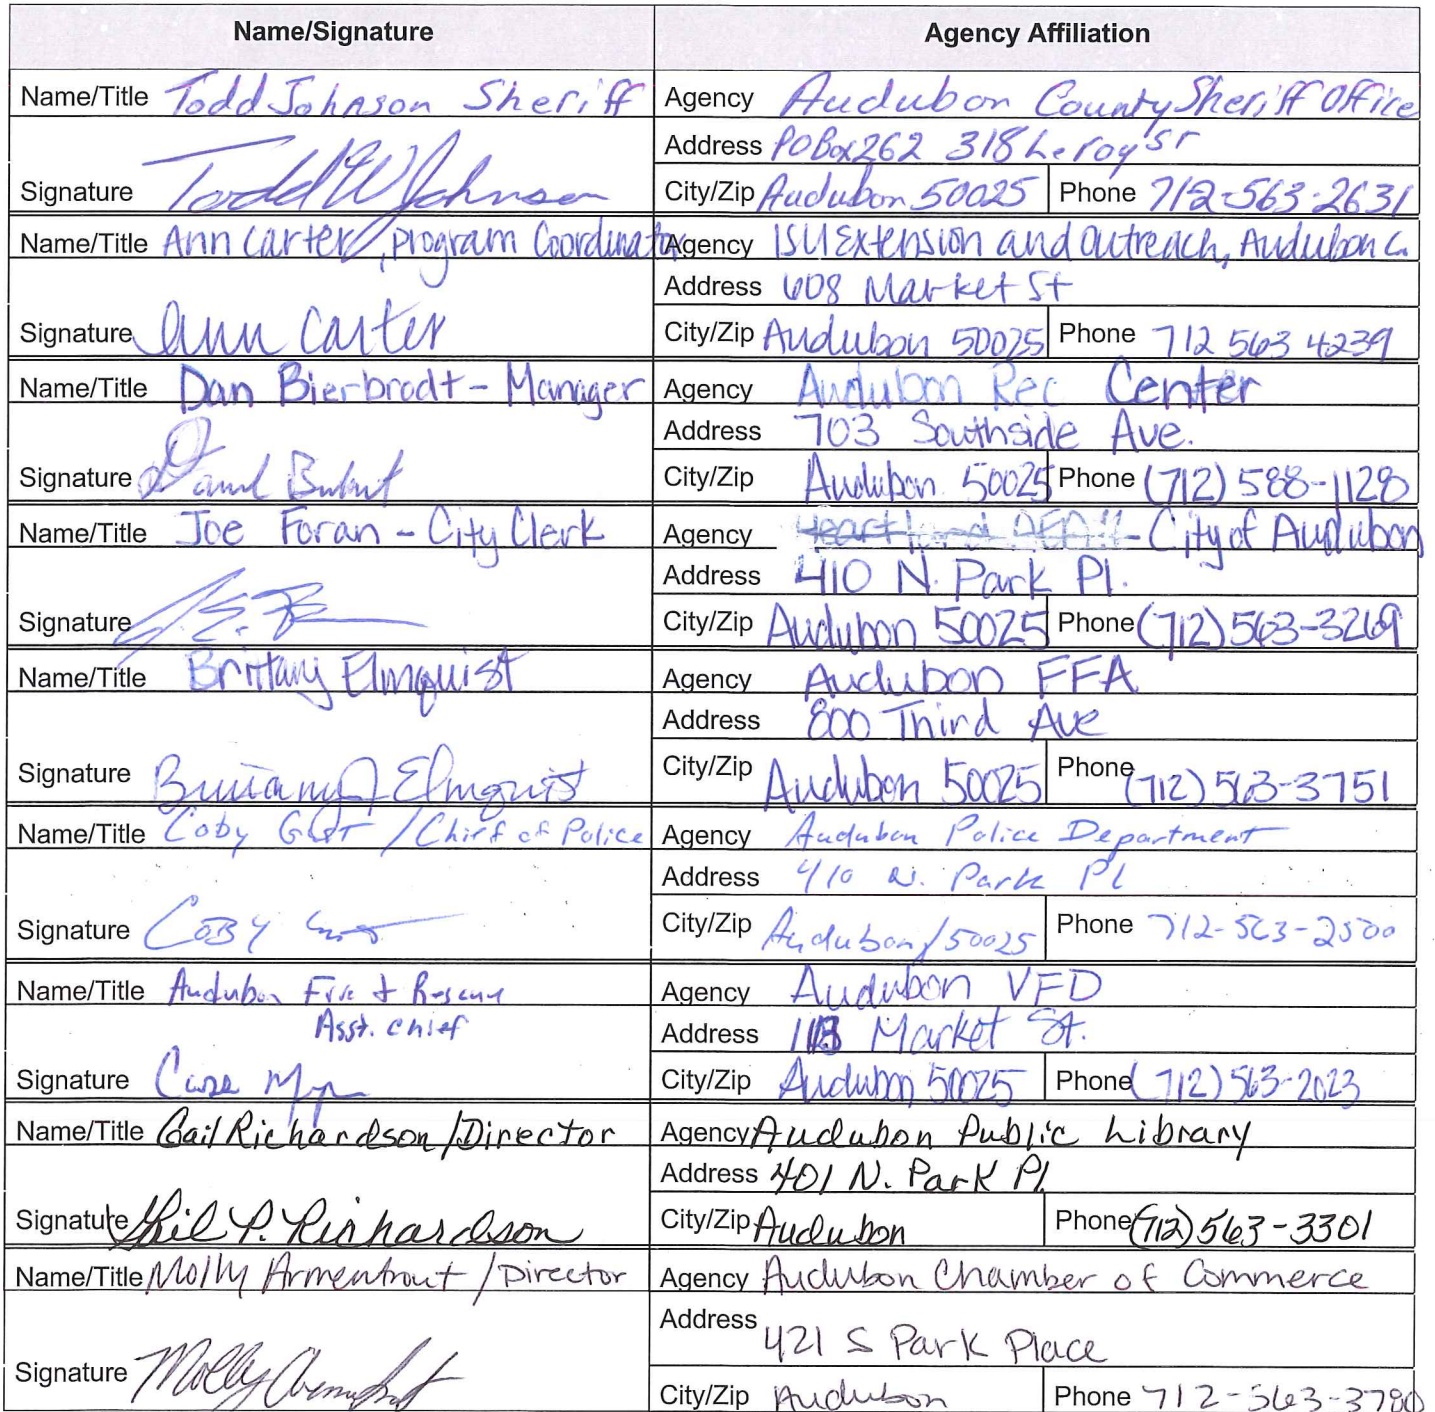 Name/Signature Agency Affiliation
Name/Title Todd Johnson Sheriff Agency Audubon County Sheriff Office
Address PO Box 262 318 Leroy St
Signature Todd W Johnson City/Zip Audubon 50025 Phone 712-563-2631
Name/Title Ann Carter, program Coordinator Agency ISU Extension and Outreach, Audubon Co.
Address 608 Market St
Signature Ann Carter City/Zip Audubon 50025 Phone 712 563 4239
Name/Title Dan Bierbrodt - Manager Agency Audubon Rec Center
Address 703 Southside Ave.
Signature City/Zip Audubon 50025 Phone (712) 588-1128
Name/Title Joe Foran - City Clerk Agency - City of Audubon
Address 410 N. Park Pl.
Signature City/Zip Audubon 50025 Phone (712) 563-3269
Name/Title Brittany Elmquist Agency Audubon FFA
Address 800 Third Ave
Signature Brittany J Elmquist City/Zip Audubon 50025 Phone (712) 563-3751
Name/Title Coby Gust / Chief of Police Agency Audubon Police Department
Address 410 N. Park Pl
Signature Coby Gust City/Zip Audubon/50025 Phone 712-563-2500
Name/Title Audubon Fire & Rescue Agency Audubon VFD
Asst. chief Address Market St.
Signature City/Zip Audubon 50025 Phone (712) 563-2023
Name/Title Gail Richardson/Director Agency Audubon Public Library
Address 401 N. Park Pl.
Signature Gail P. Richardson City/Zip Audubon Phone (712) 563-3301
Name/Title Molly Armentrout / Director Agency Audubon Chamber of Commerce
Address 421 S Park Place
Signature Molly Armentrout City/Zip Audubon Phone 712-563-3780